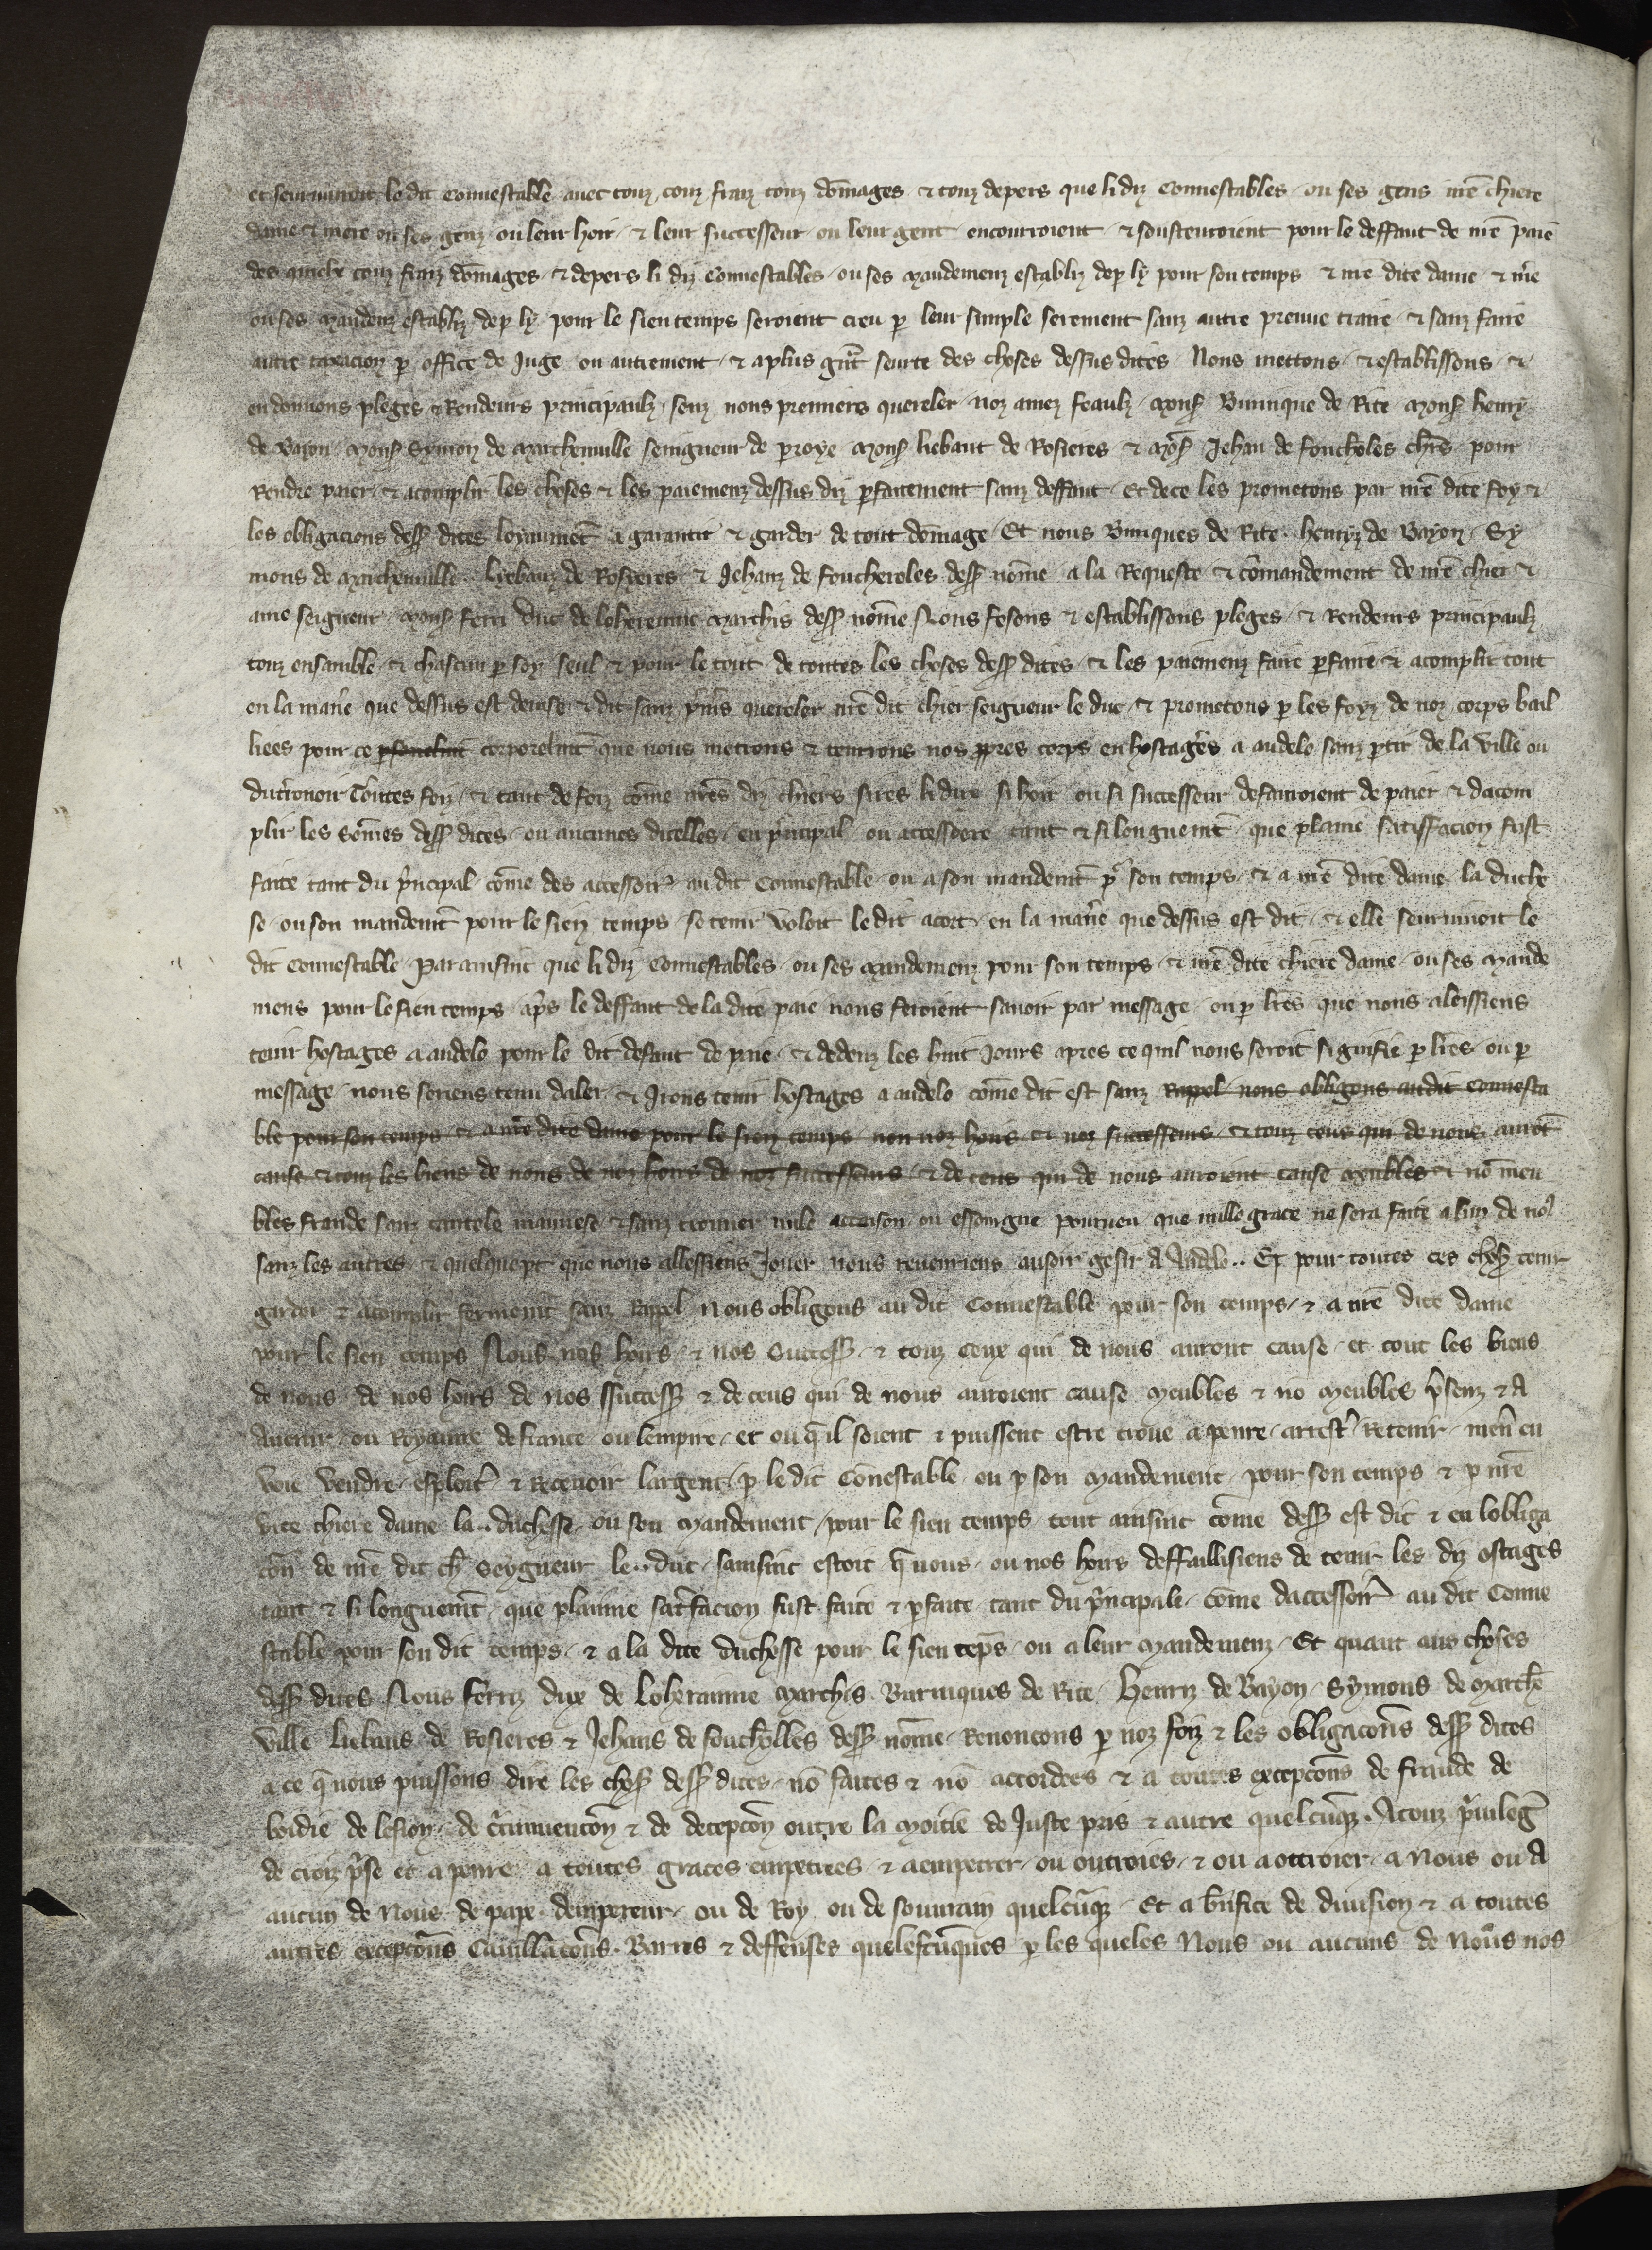 et seurvivroit le dit Connestable avec touz couz fraiz touz dōmages & touz depers que li diz Connestables ou ses gens nr̄e chiere
dame & mere ou ses genz ou leur hoir & leur successeur ou leur gent encourroient & soustenroient pour le deffaut de nr̄e paie
des quielx couz fraiz dōmages & depers li diz Connestables ou ses Mandemenz establiz dep̄ ly pour son temps & nr̄e dite dame & m̄e
ou ses Mandemz establiz dep̄ ly pour le sien temps seroient creu p̄ leur simple serement sanz autre preuve traire & sanz faire
autre taxacion p̄ office de Juge ou autrement & a plus gr̄nt seurte des choses dessus dites Nous mettons & establissons &
en donnons pleges & Rendeurs principaulz senz nous premiers quereler noz amez feaulz Mons̄ Burnique de Rite Mons̄ henry
de Bayon Mons̄ Symon de Marchenville seingneur de proye Mons̄ liebaut de Rosieres & Mōs̄ Jehan de foucholes ch̄rs pour
Rendre paier & acomplir les choses & les paiemenz dessus diz p̄faitement sanz deffaut Et de ce les prometons par nr̄e dite foy &
les obligacions dess̄ dites loyaumēt a garantir & garder de tout dōmage Et nous Burniques de Rite henrys de Bayon Sy
mons de Marchenville liebauz de Rosieres & Jehanz de fouchereles dess̄ nōme a la Requeste & cōmandement de nr̄e chier &
ame seigneur Mons̄ ferri duc de loherenne Marchis dess̄ nōme Nous fesons & establissons pleges & Rendeurs principaulz
touz ensamble & chascun p̄ soy seul & pour le tout de toutes les choses dess̄ dites & les paiemenz faire p̄faire & acomplir tout
en la mañe que dessus est devise & dit sanz p̄miers quereler nr̄e dit chier seigneur le duc & prometons p̄ les foyz de noz corps bail
liees pour ce corporelmēt que nous metrons & tenrons nos ꝓpres corps en hostages a andelo sanz p̄tir de la ville ou
du tenoir Toutes foiz & tant de foiz cōme nr̄es diz chiers sires li dux si hoir ou si successeur defauroient de paier & dacom
plir les Sōmes dess̄ dites ou aucunes dicelles en p̄ncipal ou accessoere tant & si longuemēt que plaine satisfacion fust
faite tant du p̄ncipal cōme des accessoir̄ au dit Connestable ou a son mandemēt p̄r son temps & a nr̄e dite dame la duche
se ou son mandemt̄ pour le sien temps se tenir voloit le dit acort en la mañe que dessus est dit & elle seurvivoit le
dit Connestable Par ainsint que li diz Connestables ou ses Mandemenz pour son temps & nr̄e dite chiere dame ou ses Mande
mens pour le sien temps ap̄s le deffaut de la dite paie nous feroient savoir par message ou p̄ lr̄es que nous aloissiens
tenir hostages a andelo pour le dit defaut de paie & dedenz les huit Jours apres ce quil nous seroit signifie p̄ lr̄es ou p̄
message nous seriens tenu daler & Irons tenir hostages a andelo cōme dit est sanz Rappel nous obligons au dit Connesta
ble pour son temps & a nr̄e dite dame pour le sien temps nou noz hoirs & noz successeurs & touz ceus qui de nous auröt
cause & touz les biens de nous de noz hoirs de noz successeurs & de ceus qui de nous auroient cause Meubles & nō meu
bles fraude sanz cautele mauvese & sanz trouver nule accoison ou essoingne pourveu que nulle grace ne sera faite a lun de no9
sanz les autres & quelque p̄t que nous allessiens Jouer nous revenriens au soir gesir a Andelo.. Et pour toutes ces chos̄ tenir
garder & acomplir fermemt̄ sanz Rappel Nous obligons au dit Connestable pour son temps & a nr̄e dite dame
pour le sien temps Nous nos hoirs & nos Success̄ & touz Ceux qui de nous auront cause et tout les biens
de nous de nos hoirs de nos success̄ & de ceus qui de nous auroient cause Meubles & nō Meubles p̄senz & A
Avenir ou Royaume de france ou lempire et ou q̄ il soient & puissent estre trove a penre arrest̄ Retenir men̄ en
voie vendre esploit̄ & Recevoir largent p̄ le dit Cōnestable ou p̄ son Mandement pour son temps & p̄ nr̄e
dite chiere dame la..duchesse ou son Mandement pour le sien temps tout ainsint cōme dess̄ est dit & en lobliga
cōn de nr̄e dit ch̄r Seygneur le..duc sainsint estoit q̄ nous ou nos hoirs deffaillisiens de tenir les diz ostages
tant & si longuemt̄ que plainne sat̄facion fust faite & p̄faite tant du p̄ncipale cōme daccessoir̄ au dit Conne
stable pour son dit temps & a la dite duchesse pour le sien tep̄s ou a leur Mandemenz Et quant aus choses
dess̄ dites Nous ferriz dux de loherainne Marchis Burniques de Rite Henriz de Bayon Symons de Marche
ville liebaus de Rosieres & Jehans de fouchelles dess̄ nōme Renoncons p̄ noz foiz & les obligacōns dess̄ dites
a ce q̄ nous puissons dire les chos̄ dess̄ dites nō faites & nō accordees & a toutes excepcōns de fraude de
boidie de lesion de c̄cunvencōn & de decepcōn outre la Moitie de Juste pris & autre quelcūq̄ A touz p̄vileḡ
de croiz p̄se et a penre a toutes graces empetrees & a empetrer ou outroies & ou a ottroier a Nous ou A
aucun de Nous de pape dempereur ou de Roy ou de souvrain quelcūq̄ Et a b̄nfice de division & a toutes
autres excepcōns Cavillacōns Barres & deffenses quelescūques p̄ les queles Nous ou aucuns de Nous nos